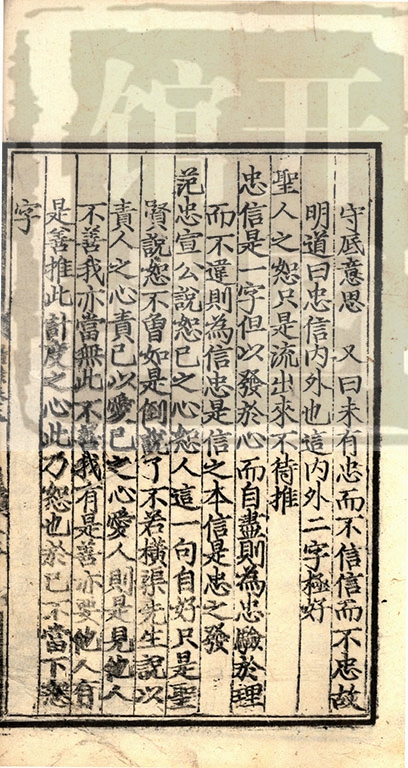 守底意思　又曰未有忠而不信信而不忠故
明道曰忠信內外也這內外二字極好
聖人之恕只是流出來不待推
忠信是一字但以發於心而自盡則為忠驗於理
而不違則為信忠是信之本信是忠之發
范忠宣公說恕已之心恕人這一句自好只是聖
賢說恕不曾如是倒說了不若橫渠先生說以
責人之心責已以愛已之心愛人則是見他人
不善我亦當無此不善我有是善亦要他人有
是善推此計度之心此乃恕也於已不當下恕
字